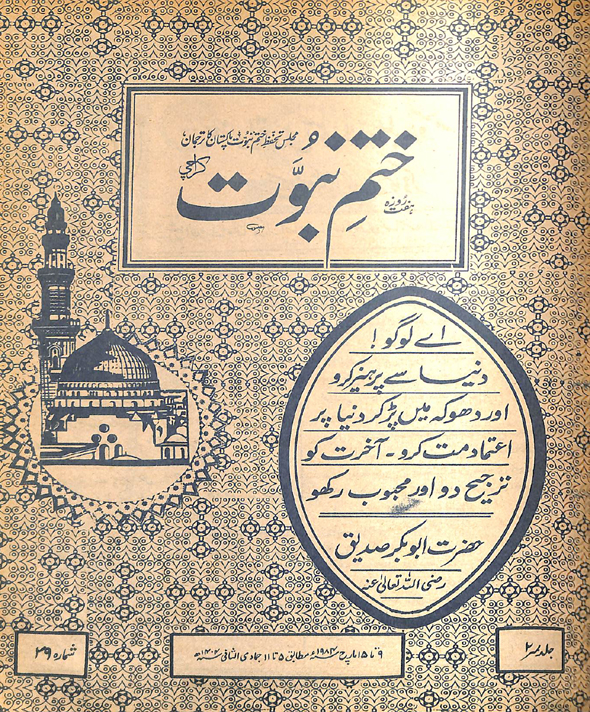 مجلس تحفظ ختم نبوت پاکستان کا ترجمان
ہفت روزہ
ختمِ نبوَّت
کراچی
اے لوگو!
دنیا سے پرہیز کرو
اور دھوکہ میں پڑ کر دنیا پر
اعتماد مت کرو۔ آخرت کو
ترجیح دو اور محبوب رکھو
حضرت ابوبکر صدیق
رضی اللہ تعالیٰ عنہ
جلد نمبر ۲
۹ تا ۱۵ مارچ ۱۹۸۴ء مطابق ۵ تا ۱۱ جمادی الثانی ۱۴۰۴ھ
شمارہ ۳۹